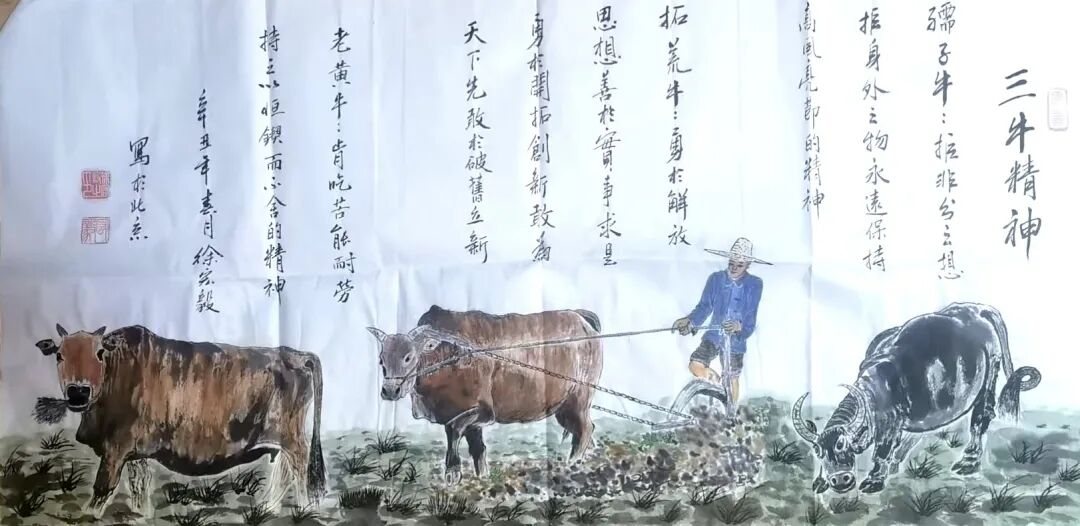 三牛精神
孺子牛：拒非分之想
拒身外之物永遠保持
高風亮節的精神
拓荒牛：勇於解放
思想善於實事求是
勇於開拓創新敢為
天下先敢於破舊立新
老黃牛：肯吃苦能耐勞
持之以恒鍥而不舍的精神
辛丑年春月徐宗毅
寫於北京